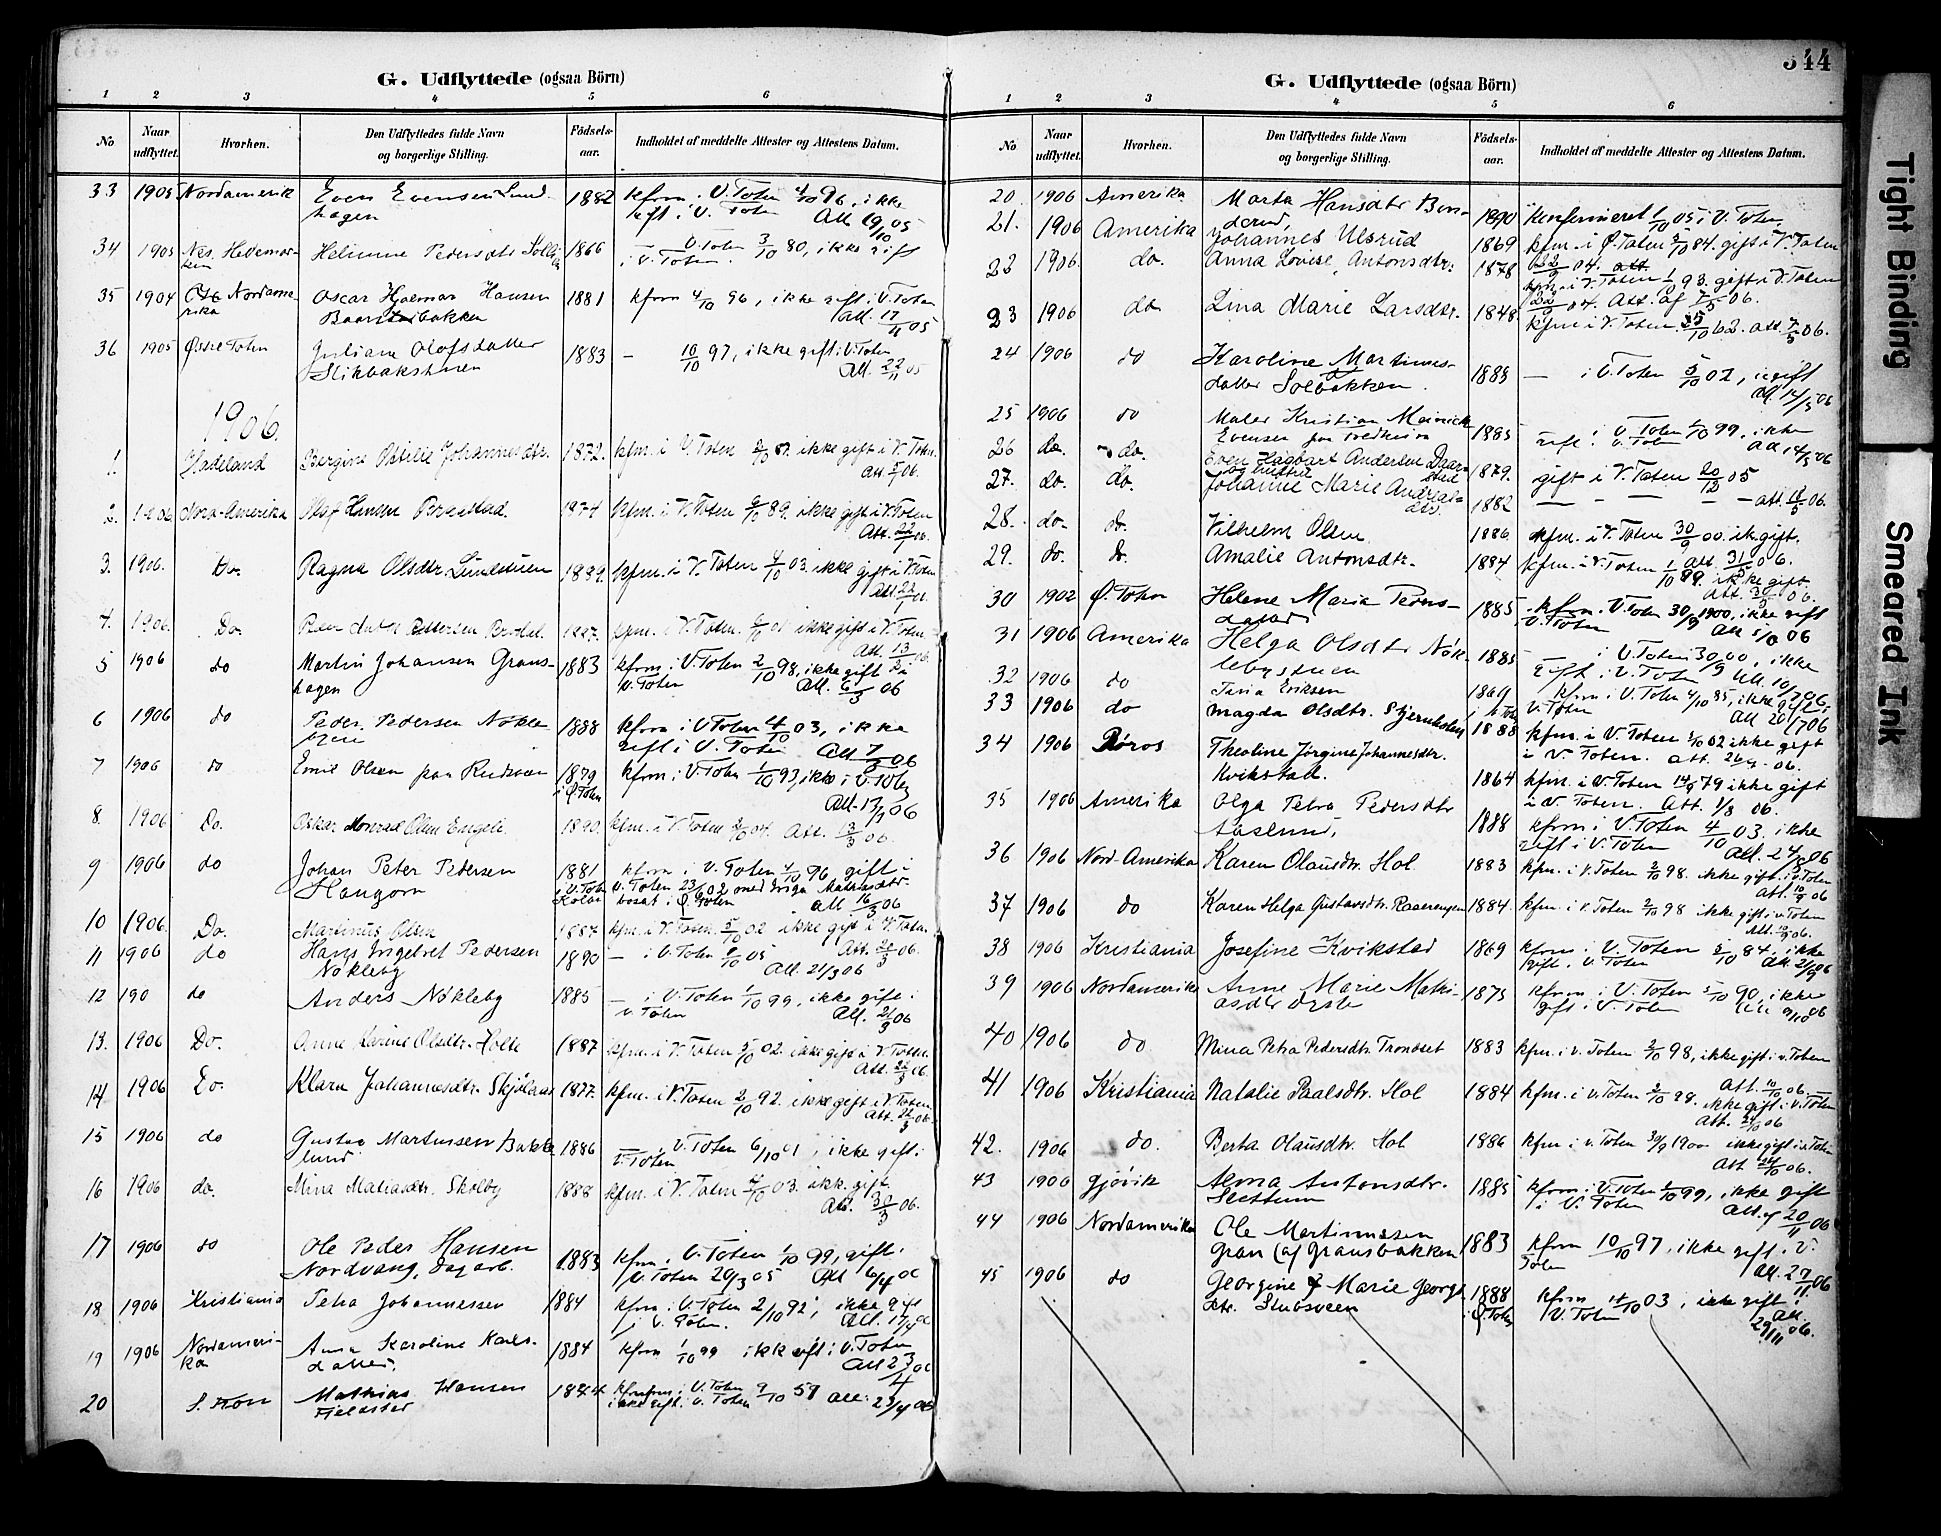 G. Udflyttede (ogsaa Börn)
1 2 3 4 5 6
No Naar udflyttet. Hvorhen. Den Udflyttedes fulde Navn og borgerlige Stilling. Födsels-aar. Indholdet af meddelte Attester og Attestens Datum.
33 1905 Nordamerik Even Evensen Lund- 1882 kfrm i V. Toten 4/10 96, ikke
hagen gift i V. Toten Att 19/10 05
34 1905 Nes. Hedemar- Helimine Pedersdtr 1866 V. Toten 3/10 80, ikke gift
ken i V. Toten.
35 1904 Nordame- Oscar Hjalmar Hansen 1881 kfrm 4/10 96, ikke gift i V. Toten
rika Baarstabakken Att. 17/11 05
36 1905 Østre Toten Juliane Olofsdatter 1883 — 10/10 97, ikke gift i V. Toten
Stikbakstuen Att. 22/11 05
1906.
1. Hadeland Bergine Otilie Johannesdtr. 1872. kfm. i V. Toten ikke gift i V. Toten.
Att. 06.
2. Nord-Amerika Olaf Hansen 1874 kfm. i V. Toten 89. ikke gift i V. Toten
Att. 22/1 06.
3. 1906. Do. Ragna Olsdtr. Lundstuen 1889. kfm. i V. Toten 4/10 03. ikke gift i V. Toten
Att. 22/1
4. 1906. Do. Pettersen 1887. kfm. i V. Toten. ikke gift i V. Toten
Att. 13/2 06.
5 1906 do Martin Johansen Grans- 1883 kfrm i V. Toten 2/10 98, ikke gift i
hagen V. Toten Att. 6/3 06
6 1906 do Peder Pedersen Nökle- 1888 kfrm i V Toten 4/10 03, ikke
byen gift i V. Toten Att 7/3 06
7 1906 do Emil Olsen paa Rudsveen 1879 kfrm i V. Toten 1/10 93, ikke i V. Toten
i Ø. Toten Att. 17/3 06
8. 1906 Do. Oskar Konrad Olsen Engeli. 1890. kfm. i V. Toten 04. Att. 06.
9 1906 do Johan Peter Pedersen 1881 kfrm i V. Toten 4/10 96 gift i
Haugom i V. Toten V. Toten 23/6 02 med Matiasdtr.
bosat i Ø. Toten Att 16/3 06
10 1906. Do. Martinus Olsen 1887. kfm. i V. Toten. 5/10 02 ikke gift i V. Toten.
Att. 20/3 06.
11 1906 do Hans Ingebret Pedersen 1890 — i V. Toten 05
Nökleby Att. 21/3 06
12 190 do Anders Nökleby 1885 — i V. Toten 1/10 99, ikke gift i
V. Toten Att. 21/3 06
13. 1906 Do. Anne Karine Olsdtr. Holte 1887 kfm. i V. Toten 5/10 02. ikke gift i V. Toten.
Att. 22/3 06.
14 1906 Do. Klara Johannesdtr. 1877. kfm. i V. Toten 2/10 92. ikke gift i V. Toten.
Att. 22/3 06.
15 1906 do Gustav Martinssen Bakke- 1886 — i V. Toten 6/10 01, ikke gift i
lund V. Toten
16 1906 do. Mina Matiasdtr. Skolby 1888 kfm. i V. Toten 4/10 03. ikk. gift.
Att. 30/3 06.
17 1906 do Ole Peder Hansen 1883 kfrm i V. Toten 1/10 99, gift i
Nordvang, dagarb. V. Toten 20/3 05 Att 6/4 06
18 1906 Kristiania Petra Johannessen 1884 kfrm i V. Toten 2/10 92, ikke gift
i V. Toten. Att. 17/4 06
19 1906 Nordameri- Anna Karoline Karls- 1884 kfrm 1/10 99 ikke gift i V. Toten
ka datter. Att 23/4 06
20 S. Fron Mathias Hansen 1844 konfrm i V. Toten 9/10 59 Att.: 23/4 06
ikke gift i V. Toten
344
G. Udflyttede (ogsaa Börn)
1 2 3 4 5 6
No Naar udflyttet. Hvorhen. Den Udflyttedes fulde Navn og borgerlige Stilling. Födsels-aar. Indholdet af meddelte Attester og Attestens Datum.
20 1906 Amerika Marta Hansdtr Bon- 1890 konfirmeret 1/10 05 i V. Toten
derud,
21. 1906 Amerika Johannes Ulsrud 1869 kfm. i Ø. Toten 84. gift i V. Toten
22 1906. do. Anna Lovise Antonsdtr. 1878 04. att.
kfm. i V. Toten 1/10 93. gift i V. Toten
04. Att. af 7/5 06.
23 1906 do Lina Marie Larsdtr. 1848 kfm i V. Toten 62. att. 7/5 06.
24 1906 do Karoline Martinus- 1883 — i V. Toten 5/10 02, ugift
datter Solbakken. Att. 14/5 06
25 1906 do Maler Kristian Meinich 1885 i V. Toten 1/10 99, ikke
Evensen paa gift i V. Toten Att 14/5 06
26 do. do. Even Hagbart Andersen 1879. gift i V. Toten 20/12 05
og hustru
27. do. do. Johanne Marie Andreas- 1882 — — — — att. 18/5 06.
dtr.
28. do. do. Vilhelm Olsen 1886 kfm. i V. Toten 30/9 00. ik. gift.
Att. 31/5 06.
29. do. do. Amalie Antonsdtr. 1884 kfm. i V. Toten 1/10 99. ikke gift
Att. 30/5 06.
30 1902 Ø. Toten Helene Maria Peders- 1885 kfrm i V. Toten 30/9 1900, ikke gift
datter V. Toten Att 06
31 1906 Amerika Helga Olsdtr Nök- 1885 — i V. Toten 30/9 00, ikke
lebystuen gift i V. Toten Att. 10/7 06.
32 1906 do Tina Eriksen 1869 kfrm i V. Toten 4/10 85, ikke gift
i V. Toten Att 20/7 06
33 1906 do Magda Olsdtr. 1888 kfm. i V. Toten 02 ikke gift
i V. Toten. Att. 06.
34 1906 Röros Theoline Jörgine Johannesdtr. 1864 kfm. i V. Toten 14/9 79 ikke gift
Kvikstad. i V. Toten. Att. 1/8 06.
35 1906 Amerika Olga Petra Pedersdtr 1888 kfrm i V. Toten 4/10 03. ikke
Aaslund, gift i V. Toten Att. 24/8 06
36 1906 Nord-Amerika Karen Olausdtr. Hol 1883 kfm. i V. Toten 2/10 98. ikke gift i V. Toten
Att. 10/9 06
37 1906 do Karen Helga Gustavsdtr. 1884. kfm. i V. Toten 2/10 98 ikke gift i V. Toten
Att. 06.
38 1906 Kristiania Josefine Kvikstad 1869 kfrm i V. Toten 5/10 84, ikke
gift i V. Toten Att. 21/9 06
39 1906 Nordamerika Anne Marie Mathi- 1875 kfrm i V. Toten 5/10 90, ikke
asdtr gift i V. Toten Att 9/10 06
40 1906 do Mina Petra Pedersdtr. 1883 kfm. i V. Toten 2/10 98, ikke gift i V. Toten
Att. 10/10 06.
41 1906 Kristiania Natalie Paalsdtr. Hol 1884 kfm. i V. Toten 2/10 98. ikke gift i V. Toten
Att. 06
42. 1906 do. Berta Olausdtr. Hol 1886 kfm. i V. Toten 30/9 1900 ikke gift i V. Toten
Att. 06.
43 1906 Gjövik Alma Antonsdtr. 1885 kfrm i V. Toten 1/10 99, ikke gift
Slettum i V. Toten Att. 20/11 06
44 1906 Nordamerika Ole Martinussen 1883 kfrm 10/10 97, ikke gift i V.
Gran (af Gransbakken) Toten Att. 27/11 06
45 1906 do Georgine Marie Georgs 1888 kfrm 4/10 03, ikke gift i
dtr. Stubsveen i Ø. Toten V. Toten Att. 29/11 06.
Tight Binding
Smeared Ink